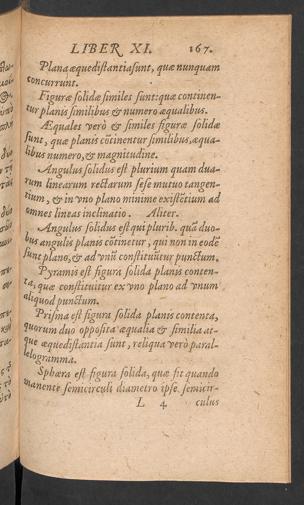 LIBER XI. 167.
Plana æquedistantia sunt, quæ nunquam
concurrunt.
Figuræ solidæ similes sunt: quæ continen-
tur planis similibus & numero æqualibus.
Æquales verò & similes figuræ solidæ
sunt, quæ planis cõtinentur similibus, æqua-
libus numero, & magnitudine.
Angulus solidus est plurium quam dua-
rum linearum rectarum sese mutuo tangen-
tium, & in vno plano minime existẽtium ad
omnes lineas inclinatio. Aliter.
Angulus solidus est qui plurib. quã duo-
bus angulis planis cõtinetur, qui non in eodẽ
sunt plano, & ad vnũ constituũtur punctum.
Pyramis est figura solida planis conten-
ta, quæ constituitur ex vno plano ad vnum
aliquod punctum.
Prisma est figura solida planis contenta,
quorum duo opposita æqualia & similia at-
que æquedistantia sunt, reliqua verò paral-
lelogramma.
Sphæra est figura solida, quæ fit quando
manente semicirculi diametro ipse semicir-
L 4 culus